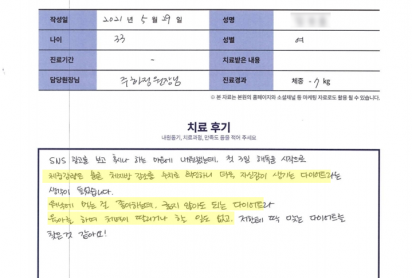 작성일 2021 년 5 월 29 일 성명
나이 33 성별 여
진료기간 - 치료받은 내용
담당원장님 주하정 원장님 진료경과 체중 -7kg
※ 본 자료는 본원의 홈페이지와 소셜채널 등 마케팅 자료로도 활용 될 수 있습니다.
치료 후기
내원동기, 치료과정, 만족도 등을 적어 주세요
SNS 광고를 보고 혹시나 하는 마음에 내원했는데, 첫 3일 해독을 시작으로
체중감량은 물론 체지방 감소를 수치로 확인하니 더욱 자신감이 생기는 다이어트라는
생각이 들었습니다.
배부르게 먹는 걸 좋아하는데, 굶지 않아도 되는 다이어트라
육아를 하며 저번에 힘들거나 하는 일도 없고, 저한테 딱 맞는 다이어트를
찾은 것 같아요!